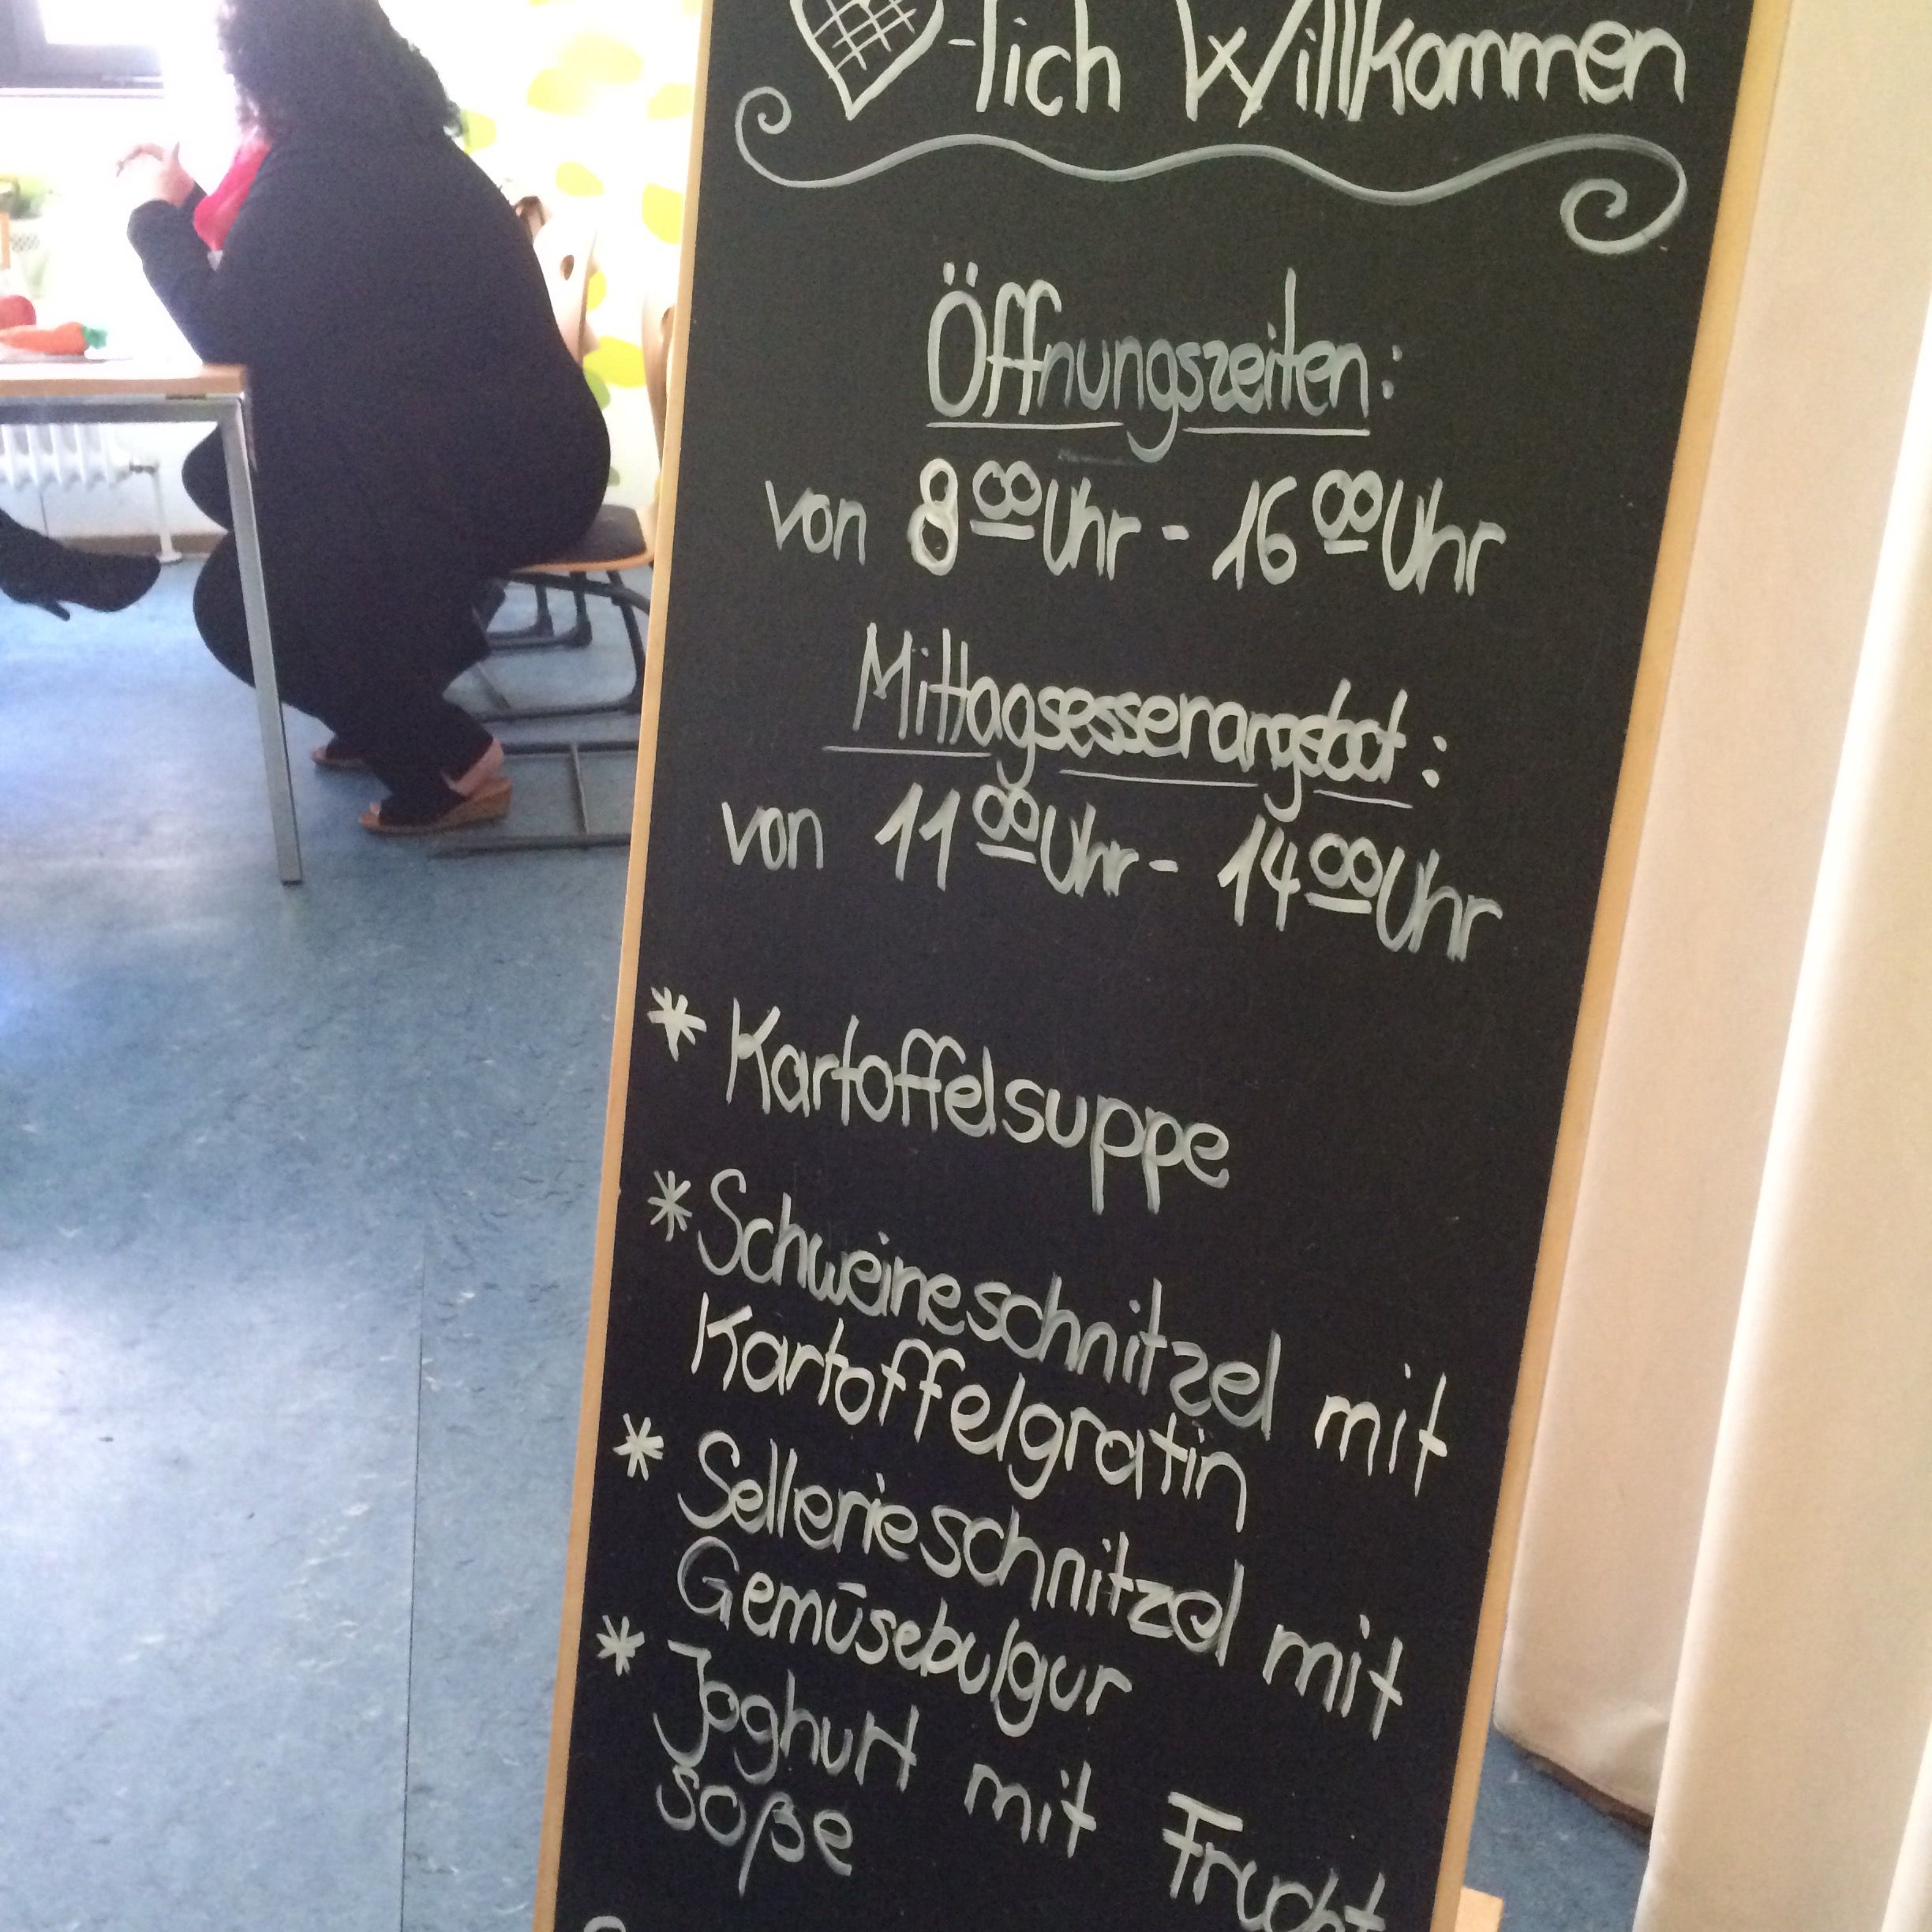 -lich Willkommen
Öffnungszeiten:
von 8⁰⁰Uhr - 16⁰⁰Uhr
Mittagsessenangebot:
von 11⁰⁰Uhr - 14⁰⁰Uhr
* Kartoffelsuppe
* Schweineschnitzel mit
Kartoffelgratin
* Sellerieschnitzel mit
Gemüsebulgur
* Joghurt mit Frucht
soße